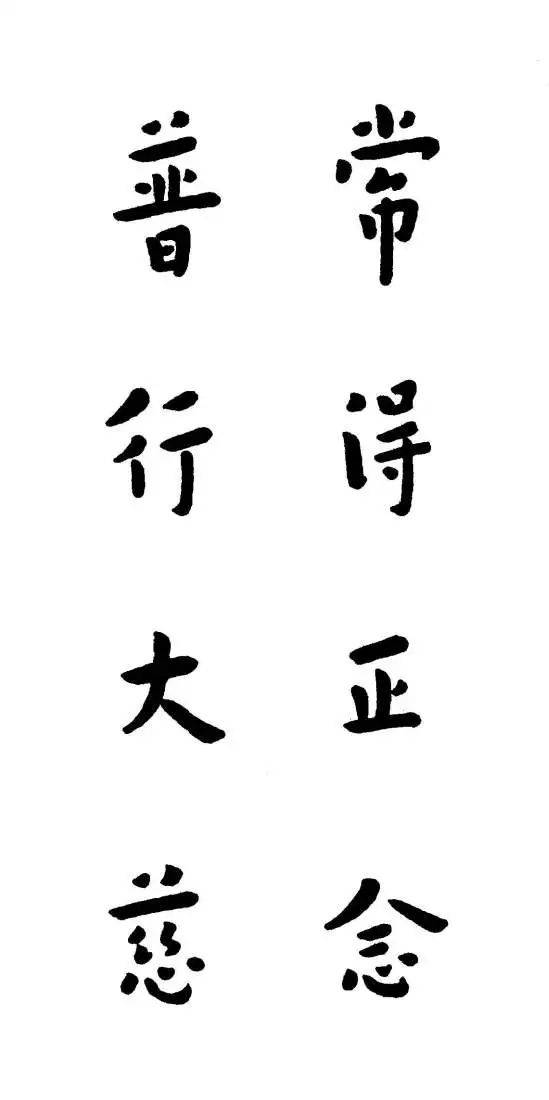 常得正念
普行大慈